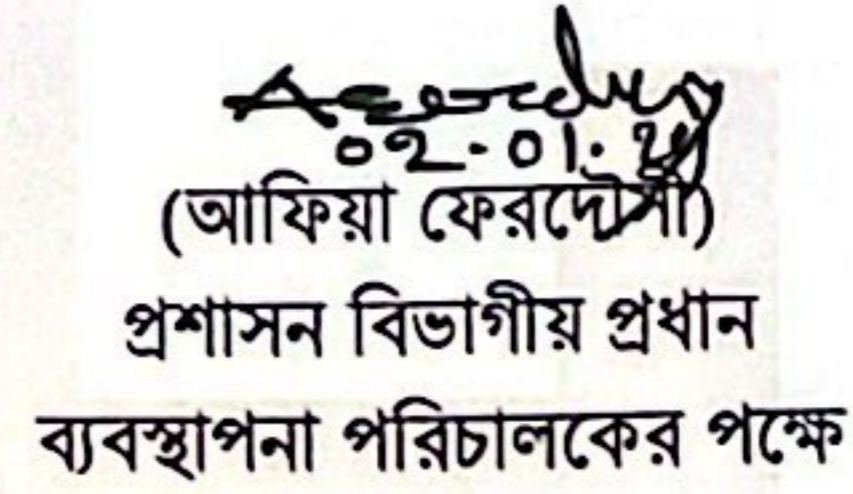 02-01-
(আফিয়া ফেরদৌসী)
প্রশাসন বিভাগীয় প্রধান
ব্যবস্থাপনা পরিচালকের পক্ষে